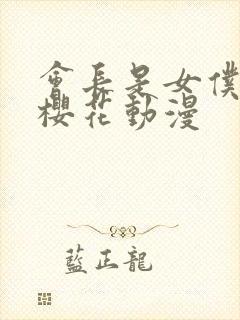 會長是女僕
櫻花動漫
藍正龍